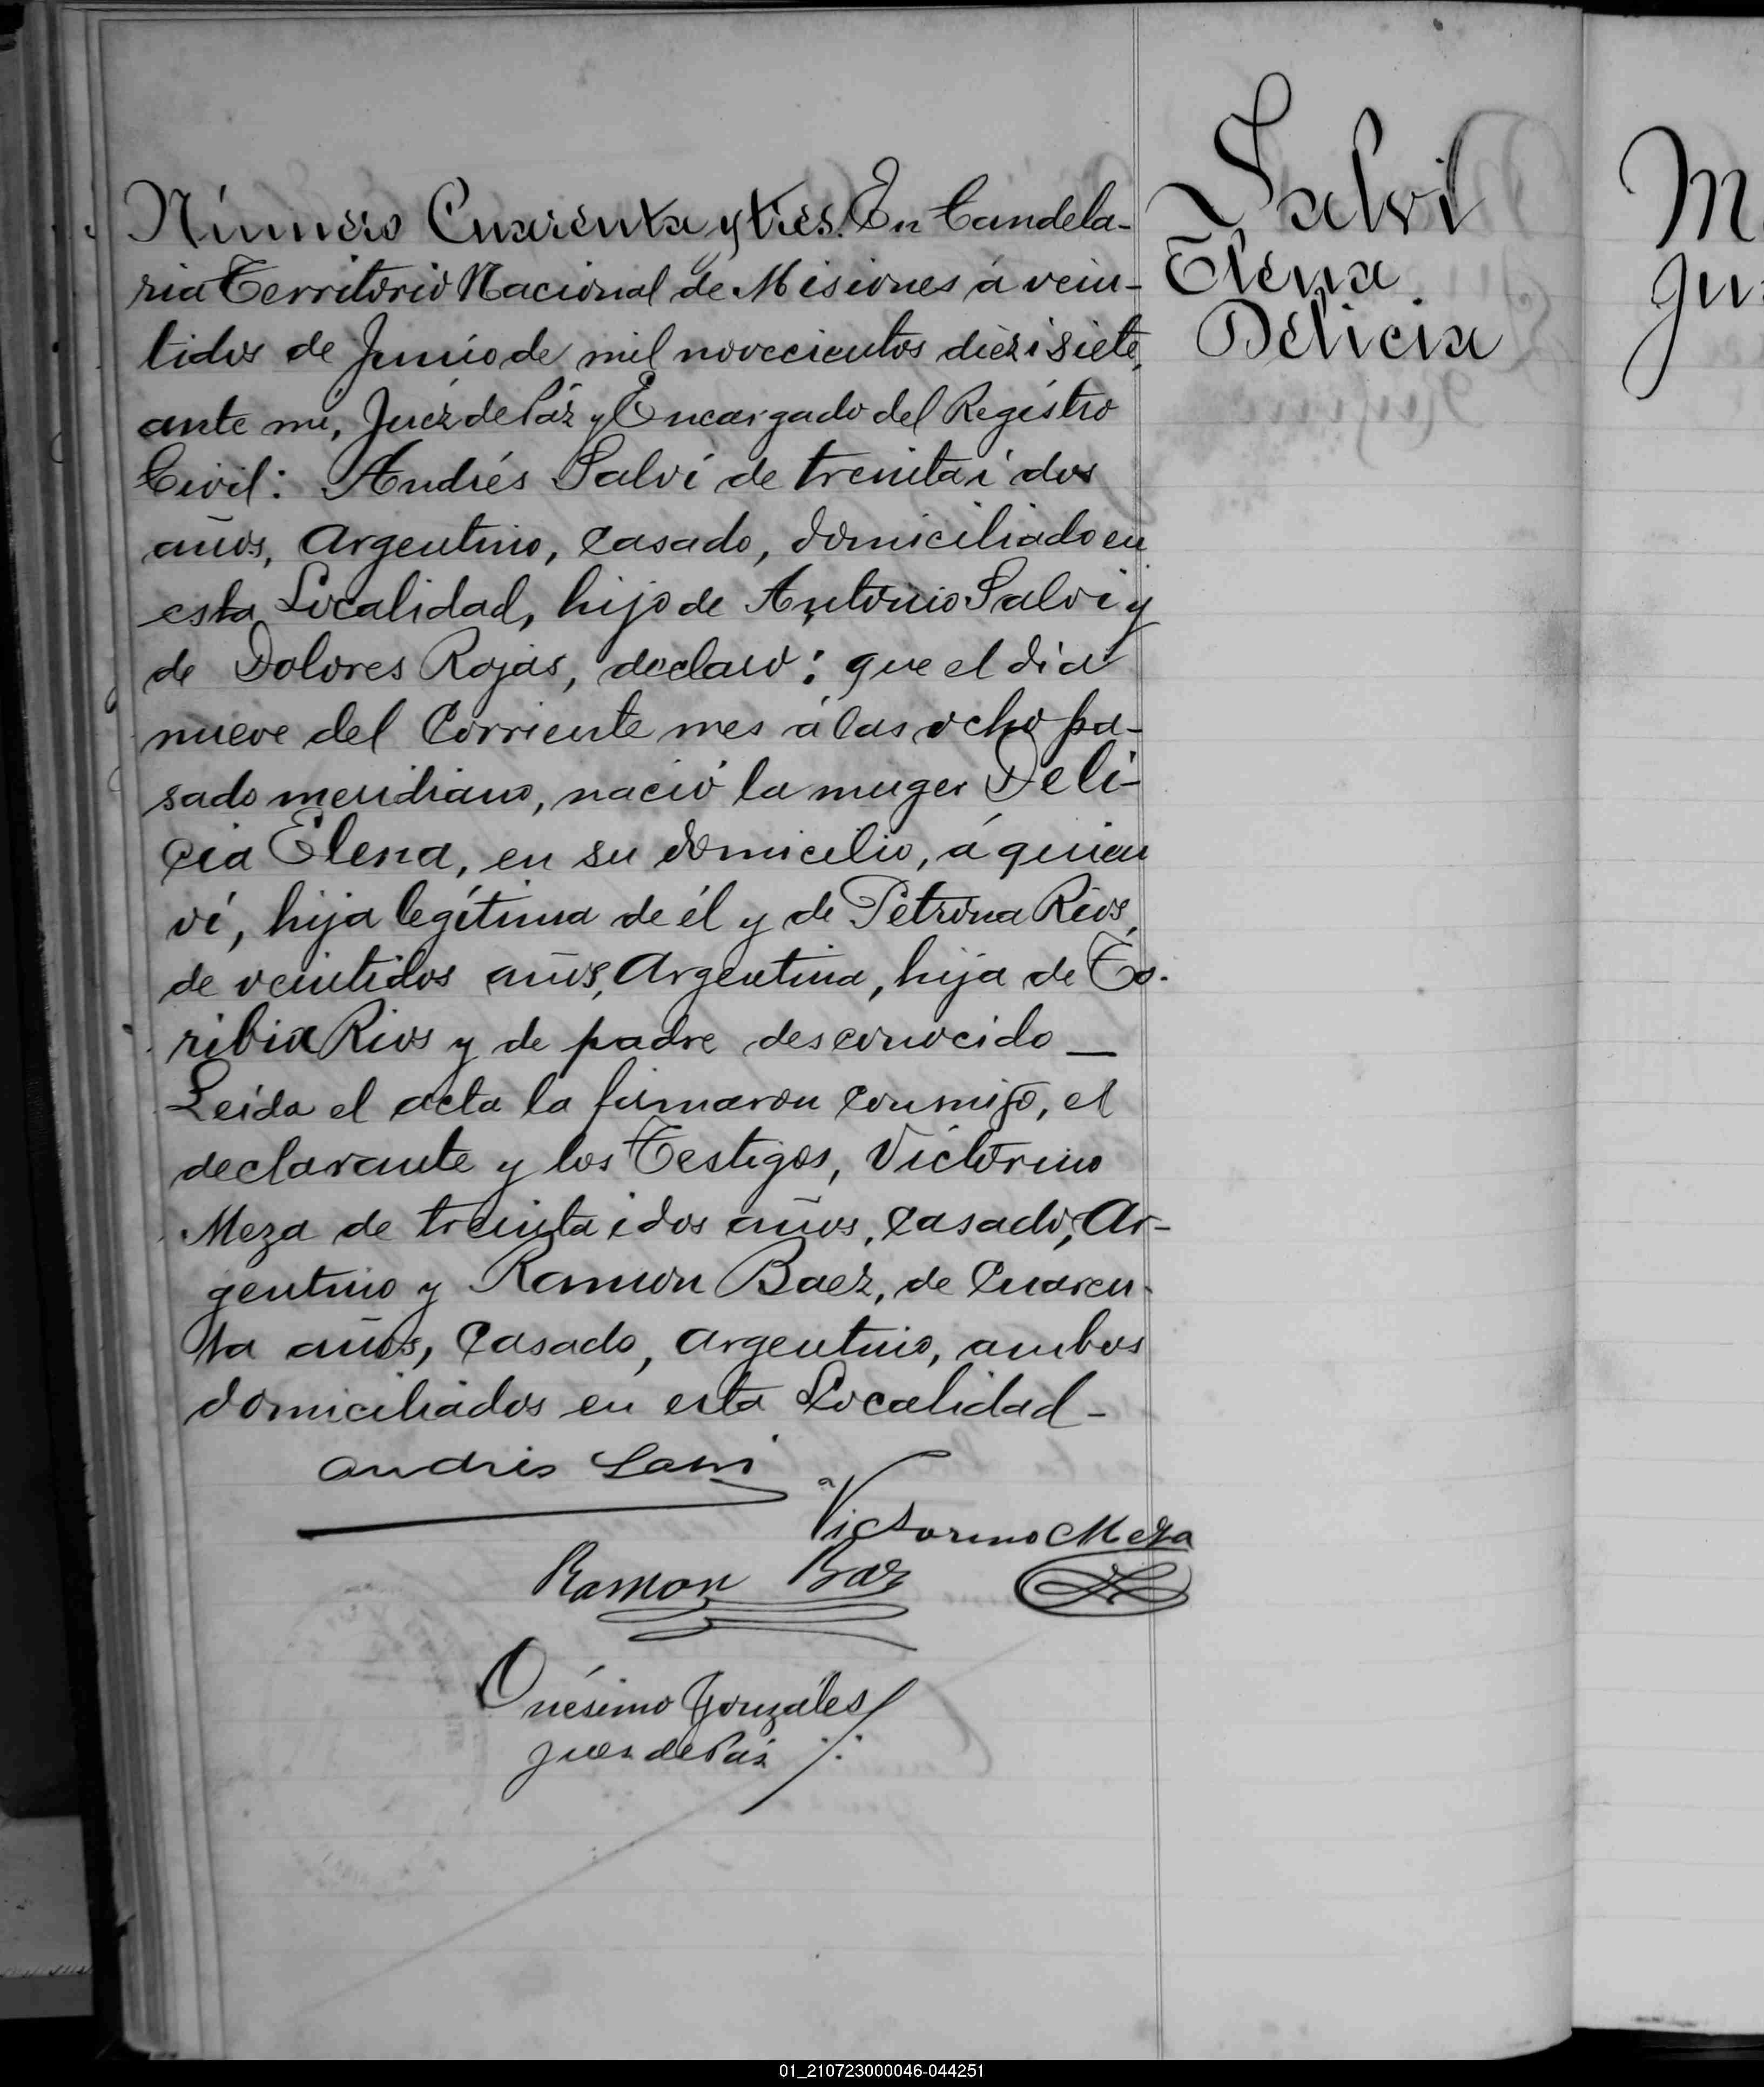 Número Cuarenta y tres. En Candela-
ria Territorio Nacional de Misiones á vein-
tidos de Junio de mil novecientos diez i siete,
ante mí, Juez de Páz y Encargado del Registro
Civil: Andrés Salvi de treinta i dos
años, Argentino, Casado, domiciliado en
esta Localidad, hijo de Antonio Salvi y
de Dolores Rojas, declaró: que el dia
nueve del Corriente mes á las ocho pa-
sado meridiano, nació la muger Deli-
cia Elena, en su domicilio, á quien
ví, hija legítima de él y de Petrona Rios,
de veintidos años, Argentina, hija de To-
ribia Rios y de padre desconocido —
Leida el acta la firmaron conmigo, el
declarante y los Testigos, Victorino
Meza de treinta i dos años, Casado, Ar-
gentino y Ramon Baez, de Cuaren-
ta años, Casado, Argentino, ambos
domiciliados en esta Localidad -
Andrés Salvi
Victorino Meza
Ramon Baz
Onésimo Gonzáles
Juez de Páz
Salvi
Elena
Delicia
M
Ju
01_210723000046-044251